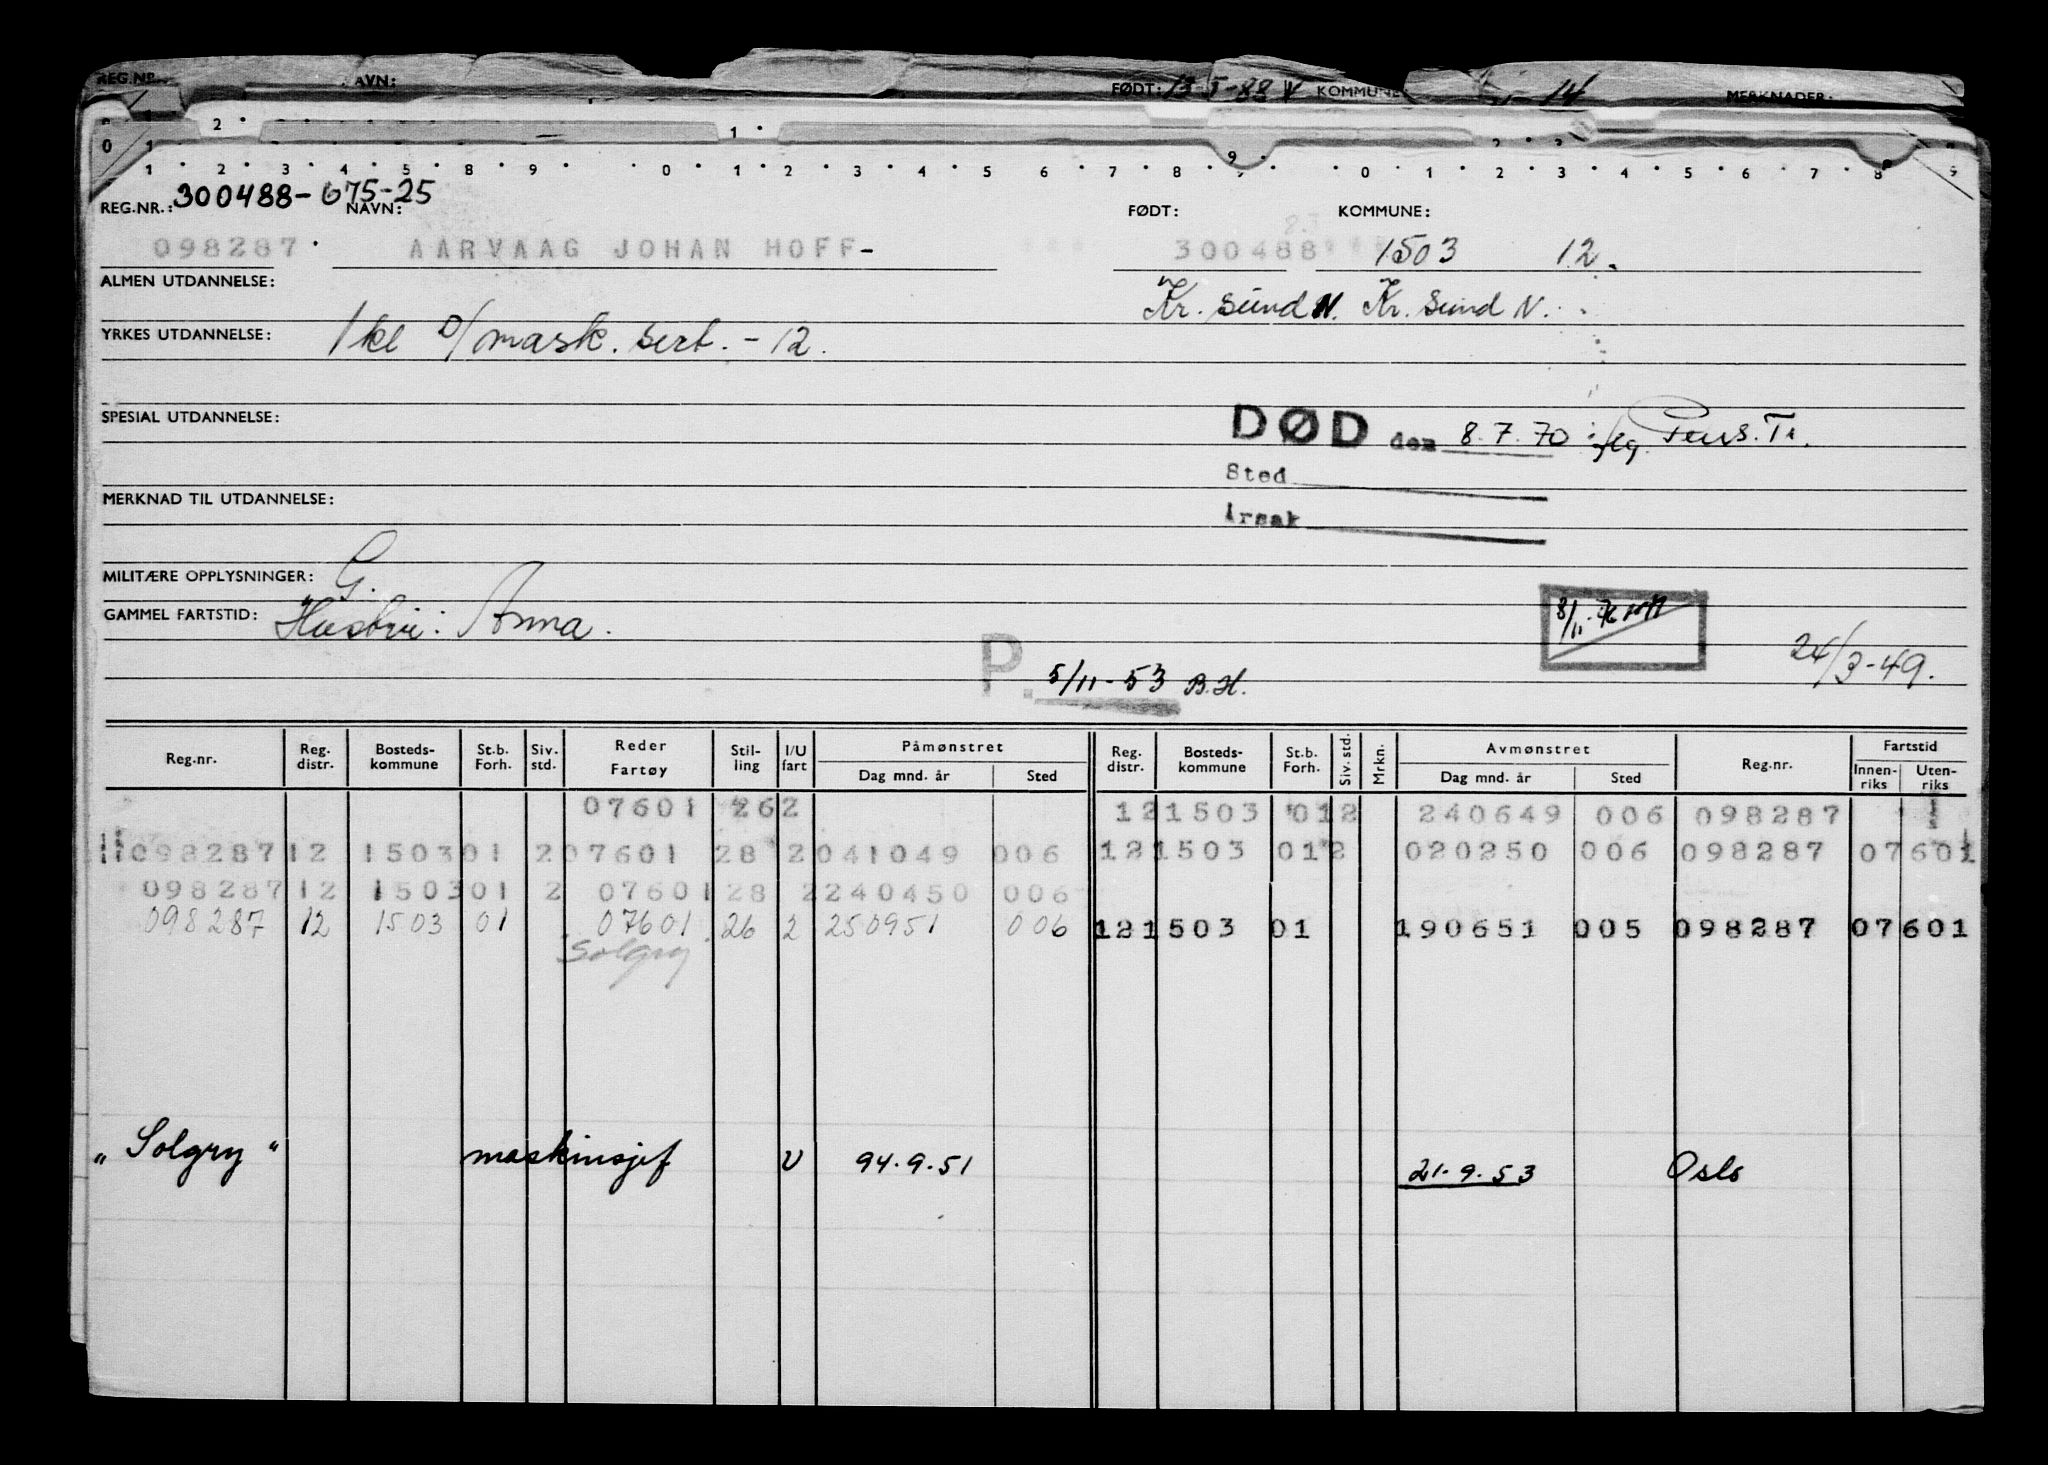 REG.NR. AVN: FØDT: 13-5-88 V KOMMUNE - 14 MERKNADER:
2 1 2 3
0 1 9 8 9
1 2 3 4 5 8 9 0 1 2 3 4 5 6 7 8 9 0 1 2 3 4 5 6 7 8 9
REG.NR.: 300488-675-25 NAVN: FØDT: KOMMUNE:
098287 AARVAAG JOHAN HOFF- 300488 1503 12.
ALMEN UTDANNELSE: Kr. Sund N. Kr. Sund N.
YRKES UTDANNELSE: 1 kl D/mask. sert. - 12.
SPESIAL UTDANNELSE: DØD den 8.7.70 iflg. Pens. Tr.
Sted
MERKNAD TIL UTDANNELSE:
Årsak
MILITÆRE OPPLYSNINGER: G.
GAMMEL FARTSTID: Hustru: Anna.
8/11-76
P. 5/11-53 B.H. 24/3-49.
Reg.nr. Reg. distr. Bosteds- kommune St.b. Forh. Siv. std. Reder Fartøy Stil- ling I/U fart Påmønstret Dag mnd. år Sted Reg. distr. Bosteds- kommune St.b. Forh. Siv. std. Mrkn. Avmønstret Dag mnd. år Sted Reg.nr. Fartstid Innen- riks Uten- riks
07601 262 121503 012 240649 006 098287
098287 12 150301 207601 28 2041049 006 121503 012 020250 006 098287 07601
098287 12 150301 2 07601 28 2240450 006
098287 12 1503 01 07601 26 2 250951 006 121503 01 190651 005 098287 07601
Solgry
"Solgry" maskinsjef U 94.9.51 21.9.53 Oslo